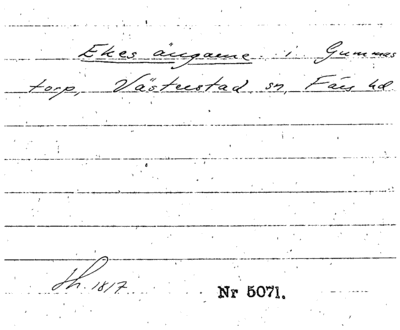 Ekes ängarne i Gummas
torp, Västerstad sn, Färs hd
Th. 1817
Nr 5071.